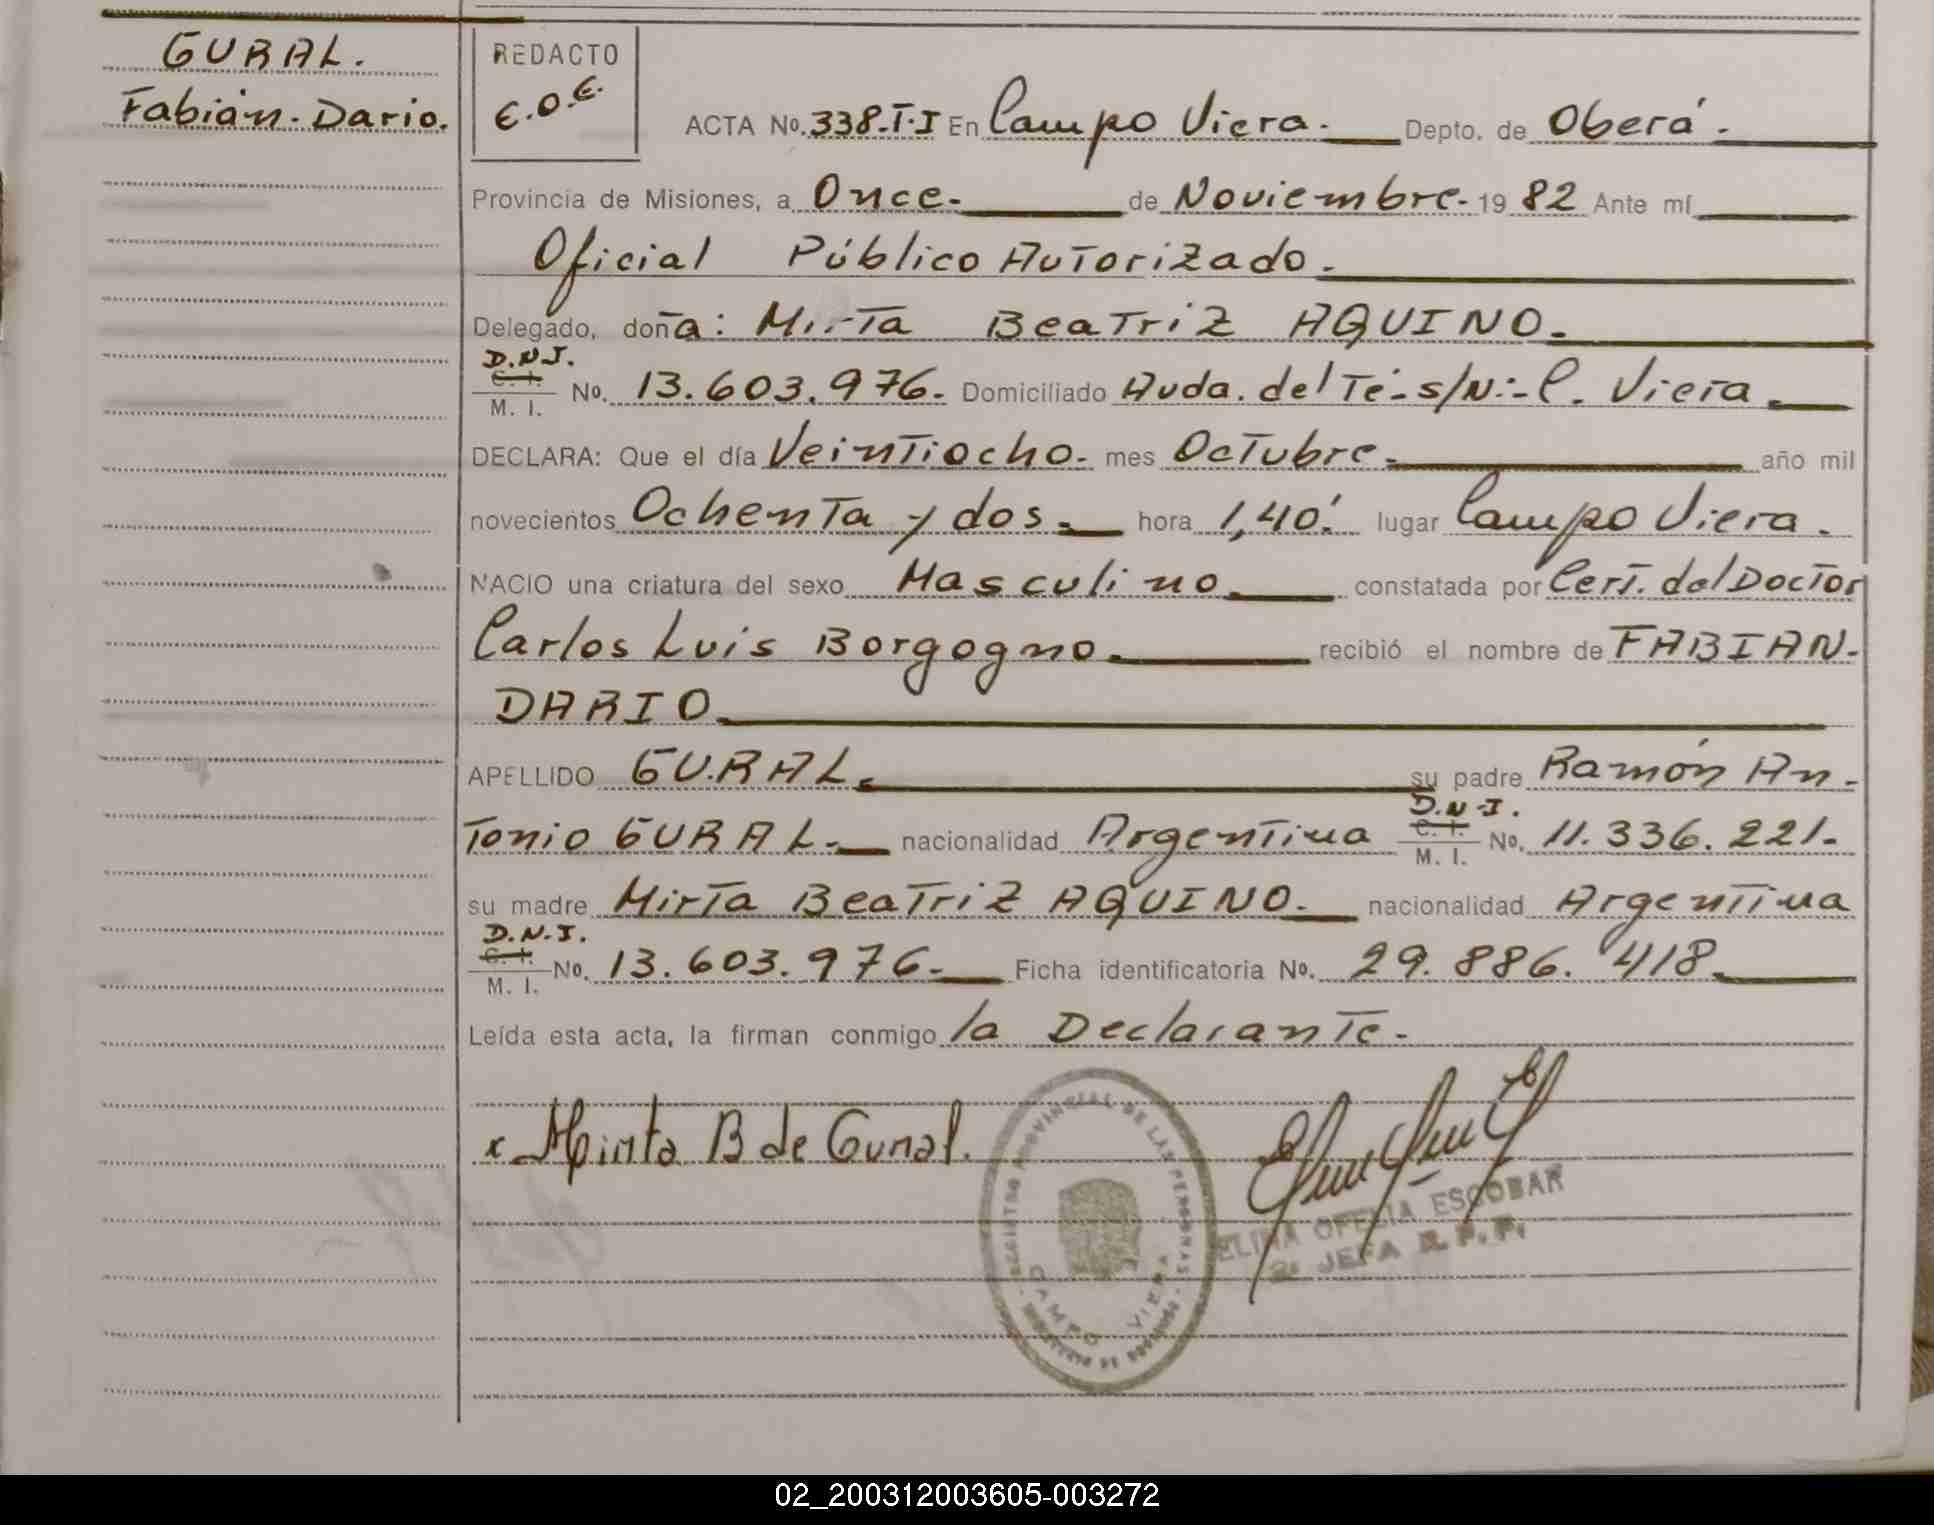 GURAL.
Fabián. Dario.
REDACTO
E.O.E.
ACTA No. 338-T-I En Campo Viera. Depto. de Oberá.
Provincia de Misiones, a Once. de Noviembre. 19 82 Ante mí
Oficial Público Autorizado.
Delegado, doña: Mirta Beatriz AQUINO.
D.N.I.
C. I.
M. I.
No. 13.603.976. Domiciliado Avda. del Té - s/N: - C. Viera.
DECLARA: Que el día Veintiocho. mes Octubre. año mil
novecientos Ochenta y dos. hora 1,40' lugar Campo Viera.
NACIO una criatura del sexo Masculino constatada por Cert. del Doctor
Carlos Luis Borgogno. recibió el nombre de FABIAN.
DARIO.
APELLIDO GURAL. su padre Ramón An-
D.N.I.
tonio GURAL. nacionalidad Argentina C. I. M. I. No. 11.336.221.
su madre Mirta Beatriz AQUINO. nacionalidad Argentina
D.N.I.
C. I.
M. I.
No. 13.603.976. Ficha identificatoria No. 29.886.418.
Leída esta acta, la firman conmigo la Declarante.
x Mirta B de Gural.
REGISTRO PROVINCIAL DE LAS PERSONAS
CAMPO VIERA
MINISTERIO DE GOBIERNO
ELINA OFELIA ESCOBAR
JEFA R. P. P.
02_200312003605-003272